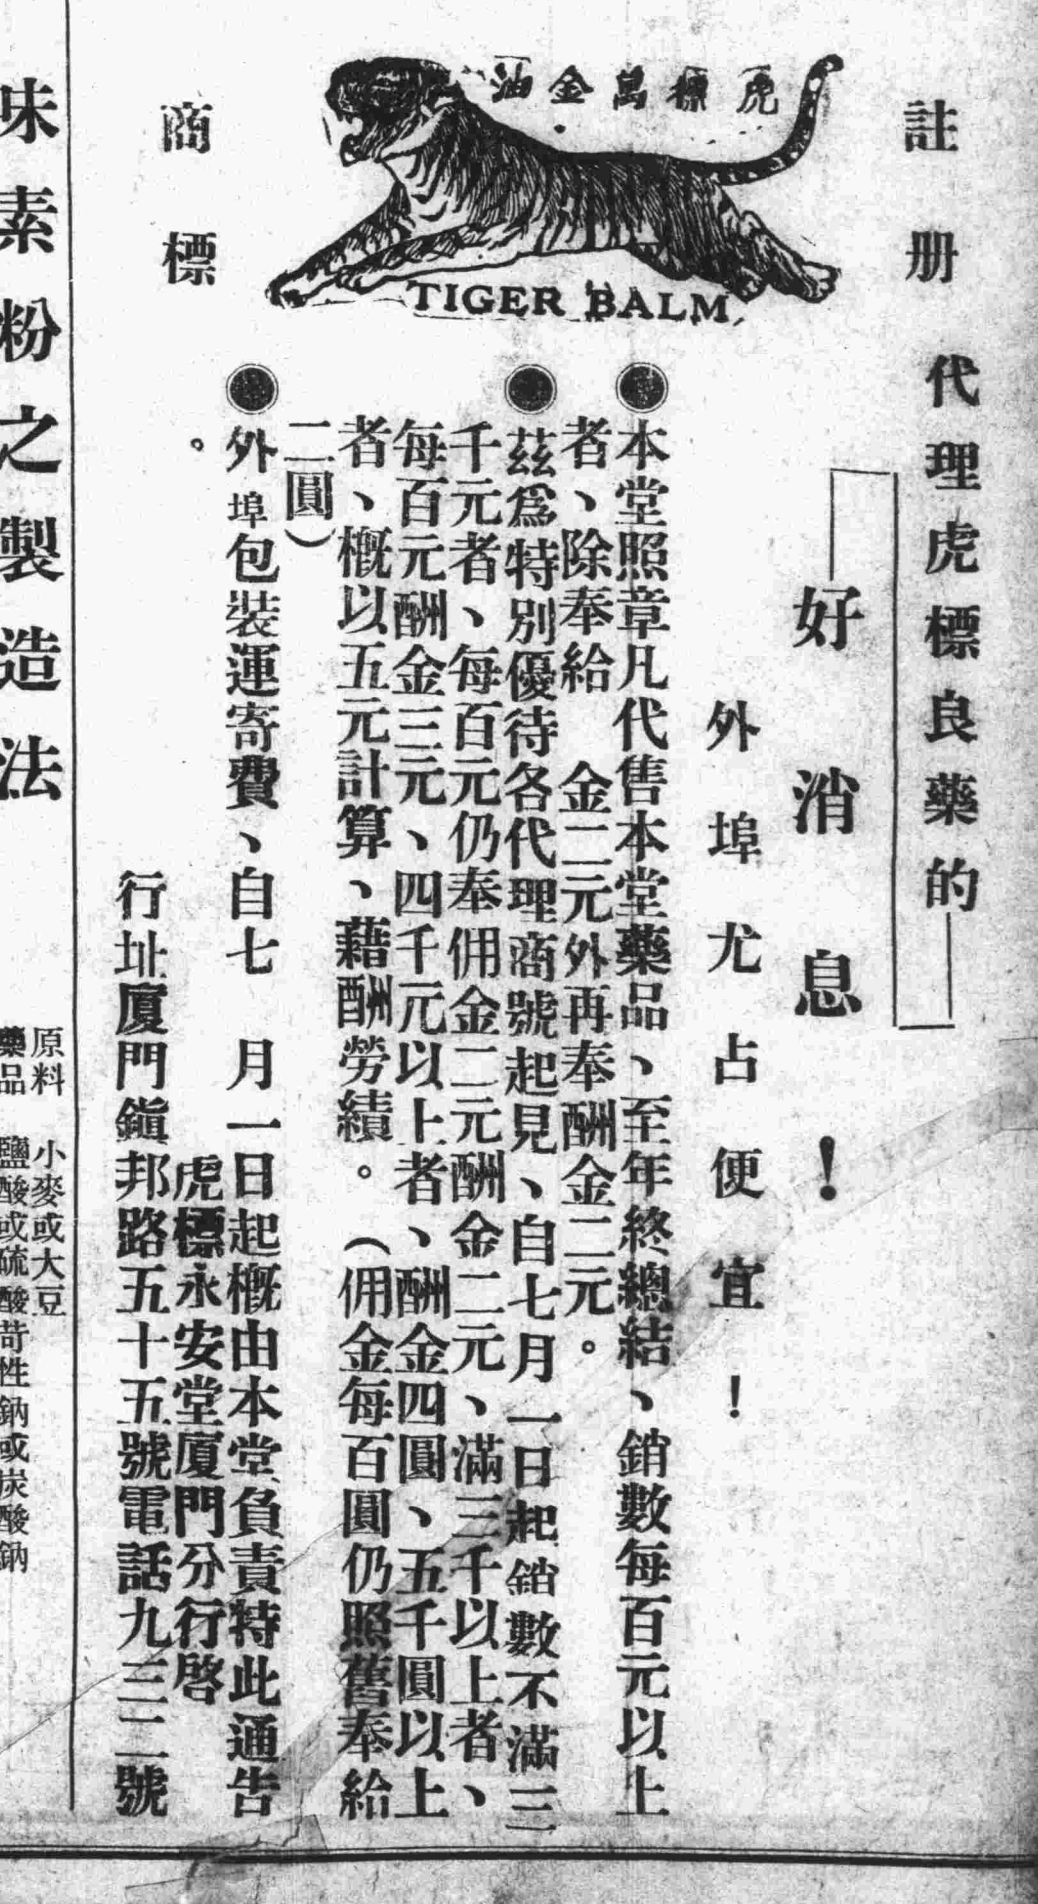 註册
商標
虎標萬金油
TIGER BALM
代理虎標良藥的
好消息！
外埠尤占便宜！
●本堂照章凡代售本堂藥品、至年終總結、銷數每百元以上
者、除奉給　金二元外再奉酬金二元。
●茲爲特別優待各代理商號起見、自七月一日起銷數不滿三
千元者、每百元仍奉佣金二元酬金二元、滿三千以上者、
每百元酬金三元、四千元以上者、酬金四圓、五千圓以上
者、概以五元計算、藉酬勞績。（佣金每百圓仍照舊奉給
二圓）
●外埠包裝運寄費、自七　月一日起概由本堂負責特此通告
。
虎標永安堂厦門分行啓
行址厦門鎭邦路五十五號電話九三二號
味素粉之製造法
原料　小麥或大豆
藥品　鹽酸或硫酸苛性鈉或炭酸鈉